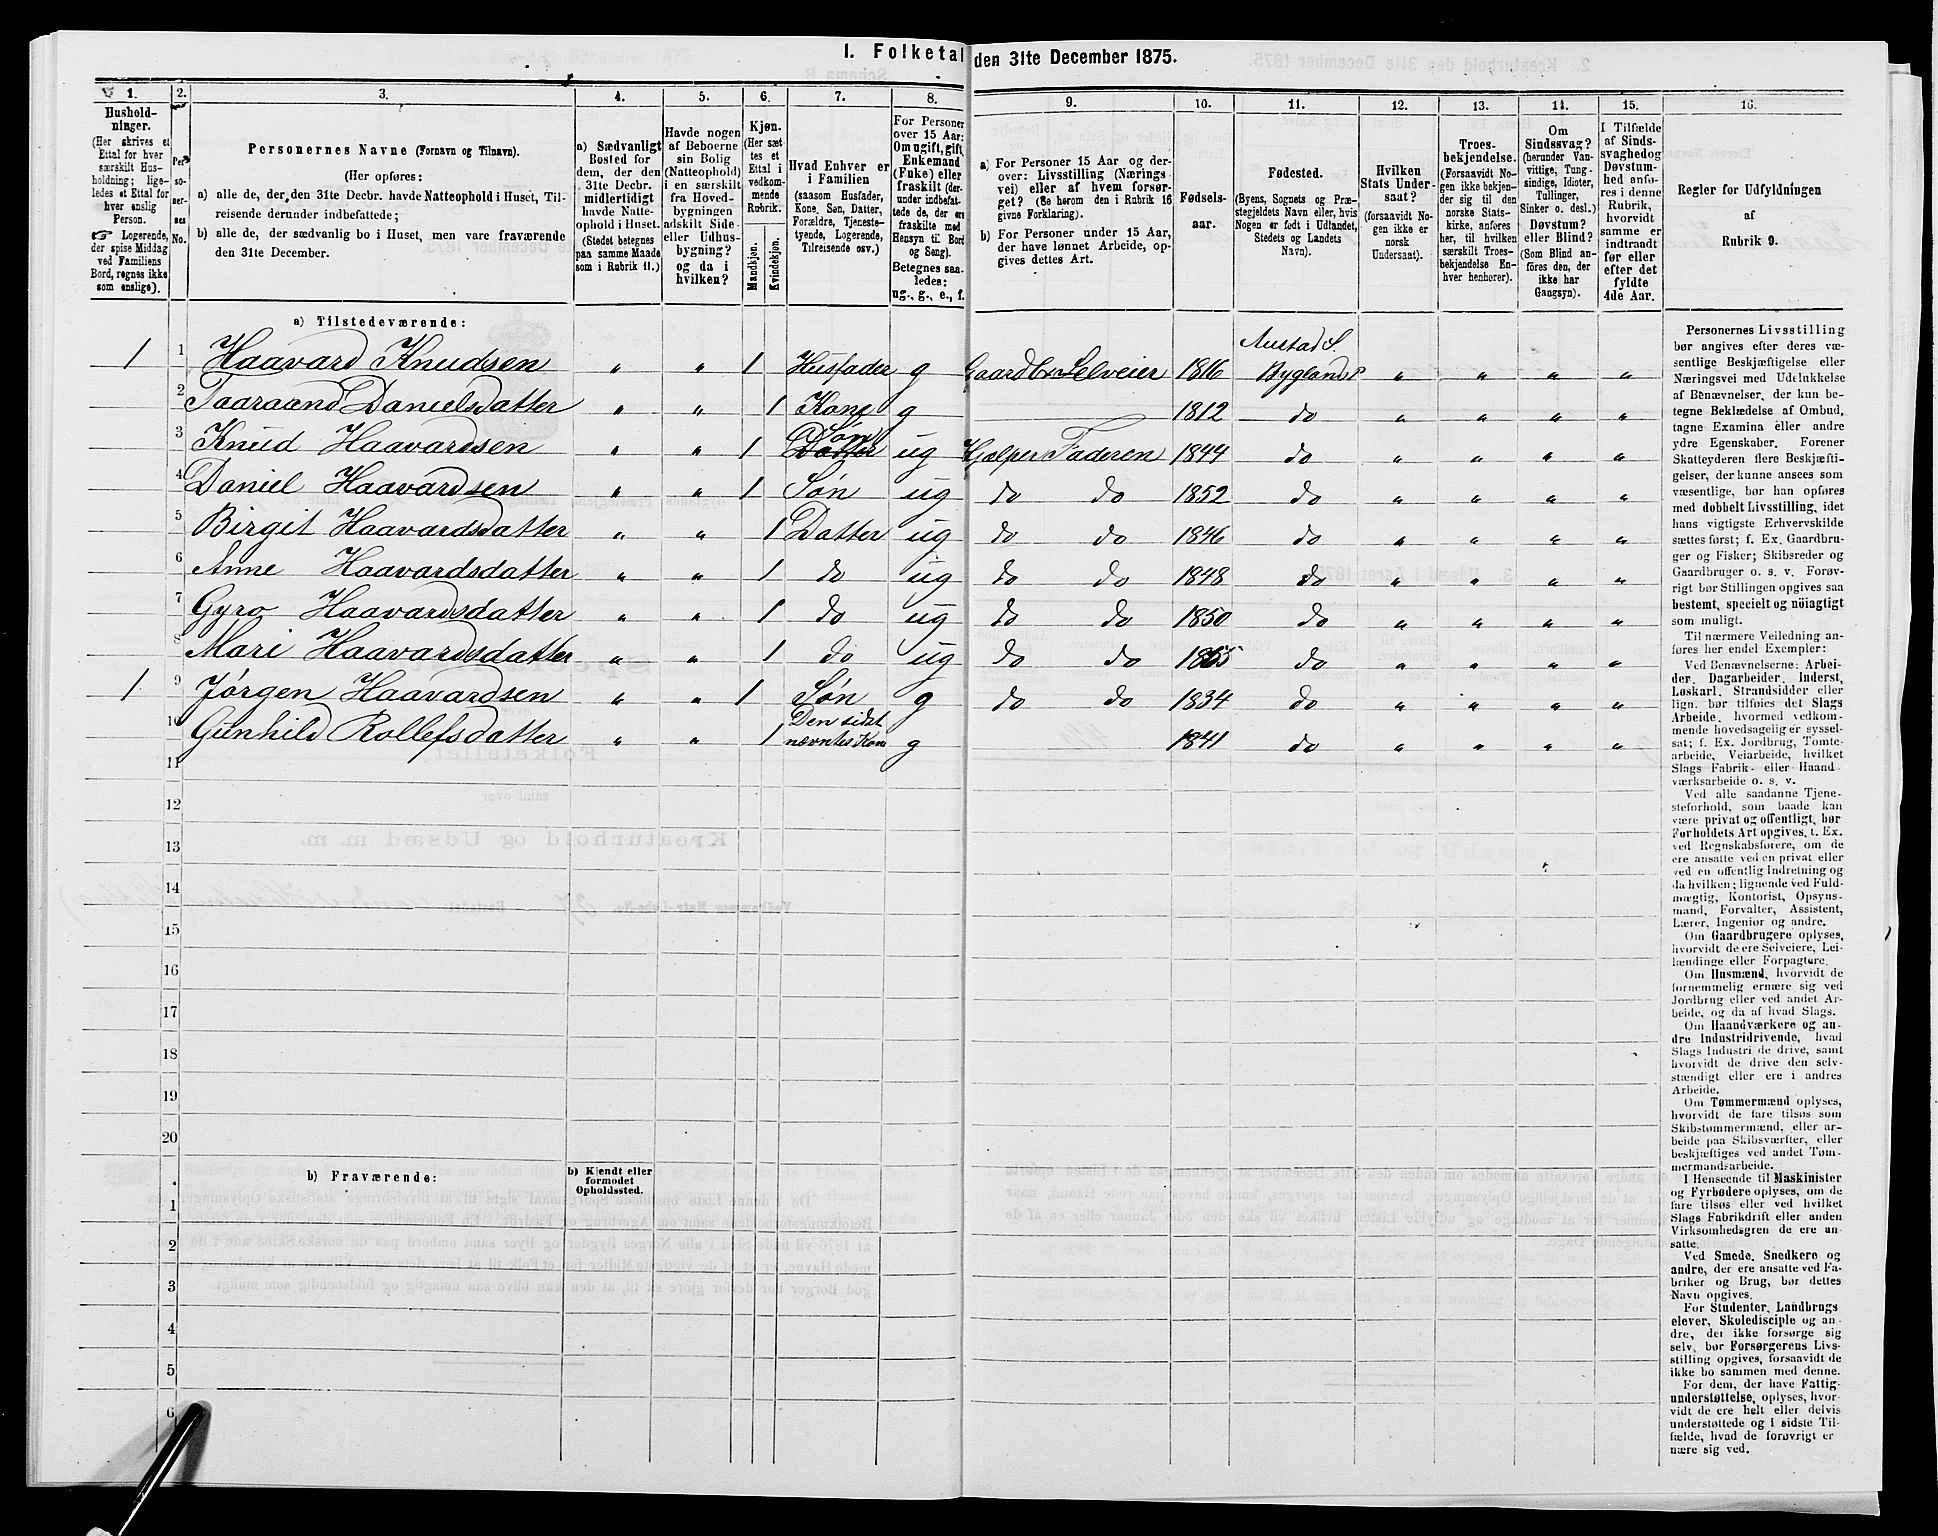 1. Folketal den 31te December 1875.
1. 2. 3. 4. 5. 6. 7. 8. 9. 10. 11. 12. 13. 14. 15. 16.
Hushold-
ninger.
(Her skrives et
Ettal for hver
særskilt Hus-
holdning; lige-
ledes et Ettal for
hver enslig
Person.
☞ Logerende,
der spise Middag
ved Familiens
Bord, regnes ikke
som enslige).
Per-
so-
ner-
nes
No.
Personernes Navne (Fornavn og Tilnavn).
(Her opføres:
a) alle de, der, den 31te Decbr. havde Natteophold i Huset, Til-
reisende derunder indbefattede;
b) alle de, der sædvanlig bo i Huset, men vare fraværende
den 31te December.
a) Sædvanligt
Bosted for
dem, der den
31te Decbr.
midlertidigt
havde Natte-
ophold i Huset.
(Stedet betegnes
paa samme Maade
som i Rubrik 11.)
Havde nogen
af Beboerne
sin Bolig
(Natteophold)
i en særskilt
fra Hoved-
bygningen
adskilt Side-
eller Udhus-
bygning?
og da i
hvilken?
Kjøn.
(Her sæt-
tes et
Ettal i
vedkom-
mende
Rubrik.
Mandkjøn.
Kvindekjøn.
Hvad Enhver er
i Familien
(saasom Husfader,
Kone, Søn, Datter,
Forældre, Tjeneste-
tyende, Logerende,
Tilreisende osv.)
For Personer
over 15 Aar:
Om ugift, gift,
Enkemand
(Enke) eller
fraskilt (der-
under indbefat-
tede de, der ere
fraskilte med
Hensyn til Bord
og Seng).
Betegnes saa-
ledes:
ug., g., e., f.
a) For Personer 15 Aar og der-
over: Livsstilling (Nærings-
vei) eller af hvem forsør-
get? (Se herom den i Rubrik 16
givne Forklaring).
b) For Personer under 15 Aar,
der have lønnet Arbeide, op-
gives dettes Art.
Fødsels-
aar.
Fødested.
(Byens, Sognets og Præ-
stegjeldets Navn eller, hvis
Nogen er født i Udlandet,
Stedets og Landets
Navn).
Hvilken
Stats Under-
saat?
(forsaavidt No-
gen ikke er
norsk
Undersaat).
Troes-
bekjendelse.
(Forsaavidt No-
gen ikke bekjen-
der sig til den
norske Stats-
kirke, anføres
her, til hvilken
særskilt Troes-
bekjendelse En-
hver henhører).
Om
Sindssvag?
(herunder Van-
vittige, Tung-
sindige, Idioter,
Tullinger,
Sinker o. desl.)
Døvstum?
eller Blind?
(Som Blind an-
føres den, der
ikke har
Gangsyn).
I Tilfælde
af Sinds-
svaghed og
Døvstum-
hed anfø-
res i denne
Rubrik,
hvorvidt
samme er
indtraadt
før eller
efter det
fyldte
4de Aar.
Regler for Udfyldningen
af
Rubrik 9.
a) Tilstedeværende:
1 1 Haavard Knudsen „ „ 1 Husfader g Gaardbr Selveier 1816 Austad S. Byglands P „ „ „ „
2 Taaraand Danielsdatter „ „ 1 Kone g 1812 do „ „ „ „
3 Knud Haavardsen „ „ 1 Datter Søn ug Hjælper Faderen 1844 do „ „ „ „
4 Daniel Haavardsen „ „ 1 Søn ug do do 1852 do „ „ „ „
5 Birgit Haavardsdatter „ „ 1 Datter ug do do 1846 do „ „ „ „
6 Anne Haavardsdatter „ „ 1 do ug do do 1848 do „ „ „ „
7 Gyro Haavardsdatter „ „ 1 do ug do do 1850 do „ „ „ „
8 Mari Haavardsdatter „ „ 1 do ug do do 1855 do „ „ „ „
1 9 Jørgen Haavardsen „ „ 1 Søn g do do 1834 do „ „ „ „
10 Gunhild Rollefsdatter „ „ 1 Den sidst nævntes Kone g 1841 do „ „ „ „
11
12
13
14
15
16
17
18
19
20
b) Fraværende:
b) Kjendt eller
formodet
Opholdssted.
1
2
3
4
5
6
Personernes Livsstilling
bør angives efter deres væ-
sentlige Beskjæftigelse eller
Næringsvei med Udelukkelse
af Benævnelser, der kun be-
tegne Beklædelse af Ombud,
tagne Examina eller andre
ydre Egenskaber. Forener
Skatteyderen flere Beskjæfti-
gelser, der kunne ansees som
væsentlige, bør han opføres
med dobbelt Livsstilling, idet
hans vigtigste Erhvervskilde
sættes først; f. Ex. Gaardbru-
ger og Fisker; Skibsreder og
Gaardbruger o. s. v. Forøv-
rigt bør Stillingen opgives saa
bestemt, specielt og nöiagtigt
som muligt.
Til nærmere Veiledning an-
føres her endel Exempler:
Ved Benævnelserne: Arbei-
der, Dagarbeider, Inderst,
Løskarl, Strandsidder eller
lign. bør tilføies det Slags
Arbeide, hvormed vedkom-
mende hovedsagelig er syssel-
sat; f. Ex. Jordbrug, Tomte-
arbeide, Veiarbeide, hvilket
Slags Fabrik- eller Haand-
værksarbeide o. s. v.
Ved alle saadanne Tjene-
steforhold, som baade kan
være privat og offentligt, bør
Forholdets Art opgives, t. Ex.
ved Regnskabsførere, om de
ere ansatte ved en privat eller
ved en offentlig Indretning og
da hvilken; lignende ved Fuld-
mægtig, Kontorist, Opsyns-
mand, Forvalter, Assistent,
Lærer, Ingeniør og andre.
Om Gaardbrugere oplyses,
hvorvidt de ere Selveiere, Lei-
lændinge eller Forpagtere.
Om Husmænd, hvorvidt de
fornemmelig ernære sig ved
Jordbrug eller ved andet Ar-
beide, og da af hvad Slags.
Om Haandværkere og an-
dre Industridrivende, hvad
Slags Industri de drive, samt
hvorvidt de drive den selv-
stændigt eller ere i andres
Arbeide.
Om Tømmermænd oplyses,
hvorvidt de fare tilsøs som
Skibstømmermænd, eller ar-
beide paa Skibsværfter, eller
beskjæftiges ved andet Tøm-
mermandsarbeide.
I Henseende til Maskinister
og Fyrbødere oplyses, om de
fare tilsøs eller ved hvilket
Slags Fabrikdrift eller anden
Virksomhedsgren de ere an-
satte.
Ved Smede, Snedkere og
andre, der ere ansatte ved Fa-
briker og Brug, bør dettes
Navn opgives.
For Studenter, Landbrugs-
elever, Skoledisciple og an-
dre, der ikke forsørge sig
selv, bør Forsørgerens Livs-
stilling opgives, forsaavidt de
ikke bo sammen med denne.
For dem, der have Fattig-
understøttelse, oplyses, hvor-
vidt de ere helt eller delvis
understøttede og i sidste Til-
fælde, hvad de forøvrigt er-
nære sig ved.